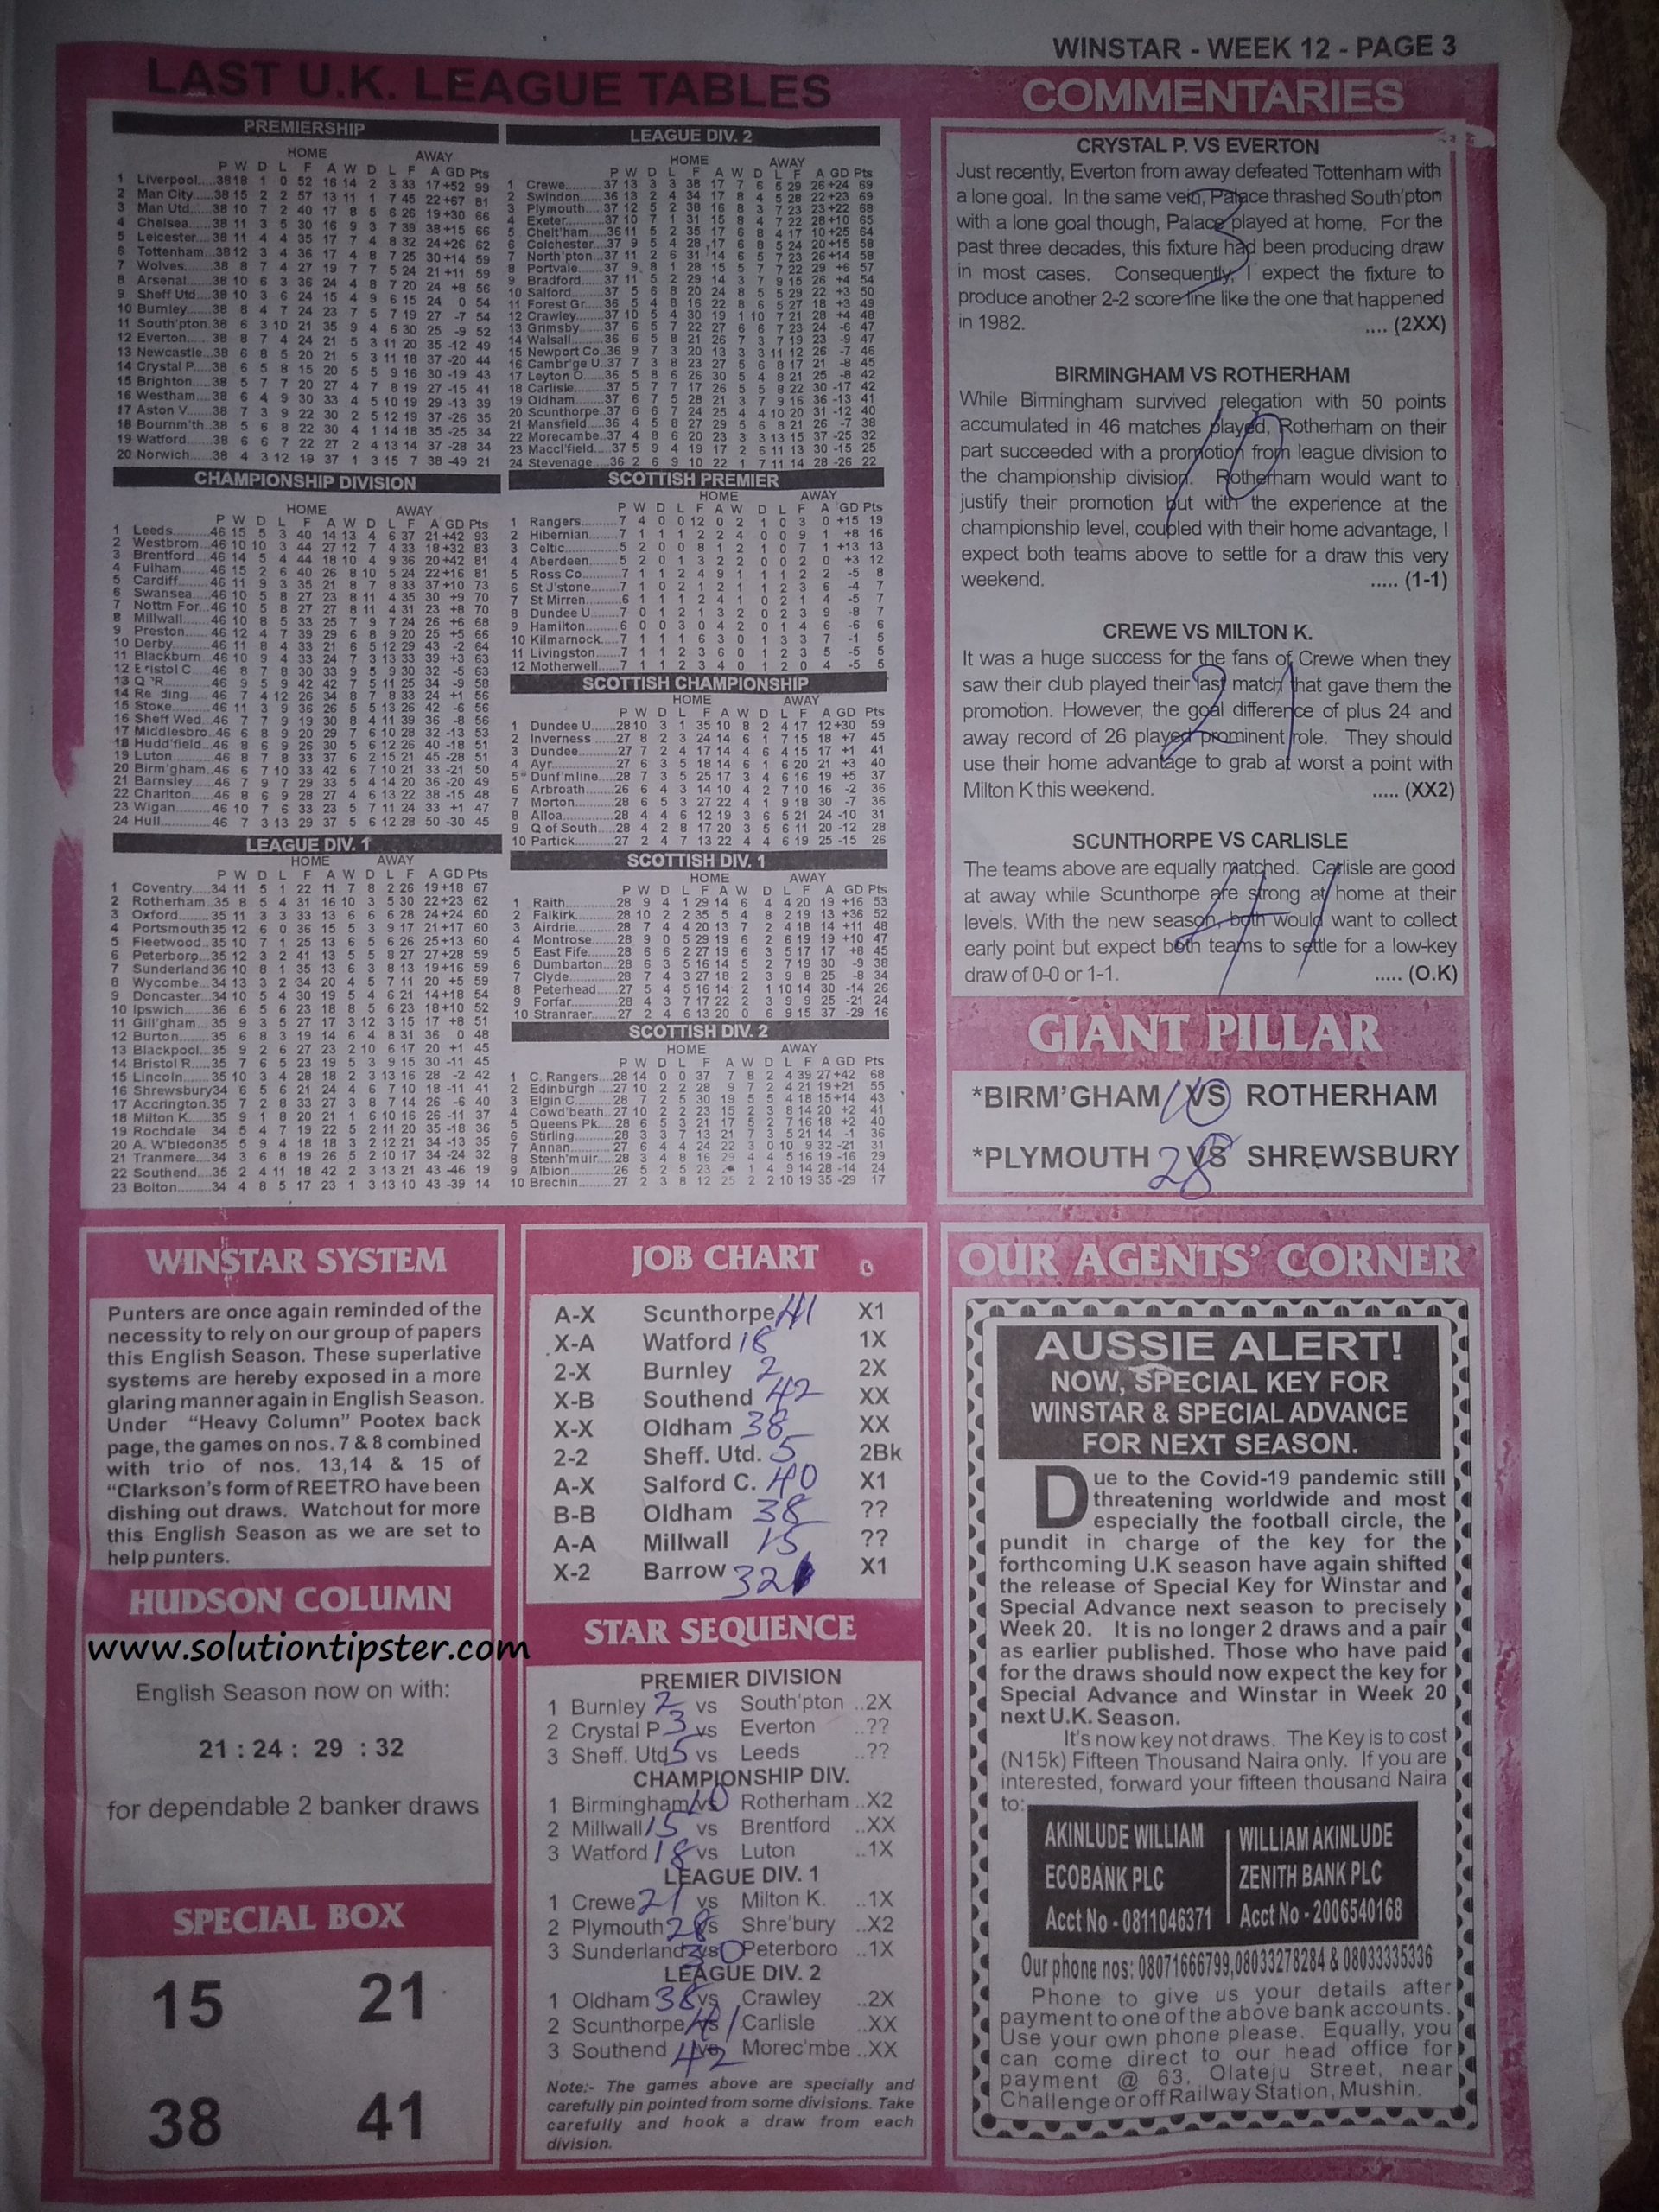 WINSTAR - WEEK 12 - PAGE 3
LAST U.K. LEAGUE TABLES
PREMIERSHIP
HOME AWAY
P W D L F A W D L F A GD Pts
1 Liverpool.....38 18 1 0 52 16 14 2 3 33 17 +52 99
2 Man City.....38 15 2 2 57 13 11 1 7 45 22 +67 81
3 Man Utd.....38 10 7 2 40 17 8 5 6 26 19 +30 66
4 Chelsea.....38 11 3 5 30 16 9 3 7 39 38 +15 66
5 Leicester....38 11 4 4 35 17 7 4 8 32 24 +26 62
6 Tottenham...38 12 3 4 36 17 4 8 7 25 30 +14 59
7 Wolves......38 8 7 4 27 19 7 7 5 24 21 +11 59
8 Arsenal.....38 10 6 3 36 24 4 8 7 20 24 +8 56
9 Sheff Utd...38 10 3 6 24 15 4 9 6 15 24 0 54
10 Burnley......38 8 4 7 24 23 7 5 7 19 27 -7 54
11 South'pton.38 6 3 10 21 35 9 4 6 30 25 -9 52
12 Everton.....38 8 7 4 24 21 5 3 11 20 35 -12 49
13 Newcastle...38 6 8 5 20 21 5 3 11 18 37 -20 44
14 Crystal P....38 6 5 8 15 20 5 5 9 16 30 -19 43
15 Brighton.....38 5 7 7 20 27 4 7 8 19 27 -15 41
16 Westham....38 6 4 9 30 33 4 5 10 19 29 -13 39
17 Aston V.....38 7 3 9 22 30 2 5 12 19 37 -26 35
18 Bournm'th..38 5 6 8 22 30 4 1 14 18 35 -25 34
19 Watford.....38 6 6 7 22 27 2 4 13 14 37 -28 34
20 Norwich....38 4 3 12 19 37 1 3 15 7 38 -49 21
CHAMPIONSHIP DIVISION
HOME AWAY
P W D L F A W D L F A GD Pts
1 Leeds........46 15 5 3 40 14 13 4 6 37 21 +42 93
2 Westbrom...46 10 10 3 44 27 12 7 4 33 18 +32 83
3 Brentford...46 14 5 4 44 18 10 4 9 36 20 +42 81
4 Fulham.....46 15 2 6 40 26 8 10 5 24 22 +16 81
5 Cardiff......46 11 9 3 35 21 8 7 8 33 37 +10 73
6 Swansea....46 10 5 8 27 23 8 11 4 35 30 +9 70
7 Nottm For...46 10 5 8 27 27 8 11 4 31 23 +8 70
8 Millwall.....46 10 8 5 33 25 7 9 7 24 26 +6 68
9 Preston.....46 12 4 7 39 29 6 8 9 20 25 +5 66
10 Derby.......46 11 8 4 33 21 6 5 12 29 43 -2 64
11 Blackburn...46 10 9 4 33 24 7 3 13 33 39 +3 63
12 E ristol C....46 8 7 8 30 33 9 5 9 30 32 -5 63
13 Q R.......46 9 5 9 42 42 7 5 11 25 34 -9 58
14 Re ding.....46 7 4 12 26 34 8 7 8 33 24 +1 56
15 Stoke.......46 11 3 9 36 26 5 5 13 26 42 -6 56
16 Sheff Wed...46 7 7 9 19 30 8 4 11 39 36 -8 56
17 Middlesbro..46 6 8 9 20 29 7 6 10 28 32 -13 53
18 Hudd'field...46 8 6 9 26 30 5 6 12 26 40 -18 51
19 Luton.......46 8 7 8 33 37 6 2 15 21 45 -28 51
20 Birm'gham..46 6 7 10 33 42 6 7 10 21 33 -21 50
21 Barnsley....46 7 9 7 29 33 5 4 14 20 36 -20 49
22 Charlton....46 8 6 9 28 27 4 6 13 22 38 -15 48
23 Wigan......46 10 7 6 33 23 5 7 11 24 33 +1 47
24 Hull.........46 7 3 13 29 37 5 6 12 28 50 -30 45
LEAGUE DIV. 1
HOME AWAY
P W D L F A W D L F A GD Pts
1 Coventry....34 11 5 1 22 11 7 8 2 26 19 +18 67
2 Rotherham..35 8 5 4 31 16 10 3 5 30 22 +23 62
3 Oxford.......35 11 3 3 33 13 6 6 6 28 24 +24 60
4 Portsmouth 35 12 6 0 36 15 5 3 9 17 21 +17 60
5 Fleetwood..35 10 7 1 25 13 6 5 6 26 25 +13 60
6 Peterboro...35 12 3 2 41 13 5 5 8 27 27 +28 59
7 Sunderland 36 10 8 1 35 13 6 3 8 13 19 +16 59
8 Wycombe...34 13 3 2 34 20 4 5 7 11 20 +5 59
9 Doncaster...34 10 5 4 30 19 5 4 6 21 14 +18 54
10 Ipswich.....36 6 5 6 23 18 8 5 6 23 18 +10 52
11 Gill'gham...35 9 3 5 27 17 3 12 3 15 17 +8 51
12 Burton......35 6 8 3 19 14 6 4 8 31 36 0 48
13 Blackpool...35 9 2 6 27 23 2 10 6 17 20 +1 45
14 Bristol R.....35 7 6 5 23 19 5 3 9 15 30 -11 45
15 Lincoln......35 10 3 4 28 18 2 3 13 16 28 -2 42
16 Shrewsbury34 6 5 6 21 24 4 6 7 10 18 -11 41
17 Accrington.35 7 2 8 33 27 3 8 7 14 26 -6 40
18 Milton K.....35 9 1 8 20 21 1 6 10 16 26 -11 37
19 Rochdale 34 5 4 7 19 22 5 2 11 20 35 -18 36
20 A. W'bledon35 5 9 4 18 18 3 2 12 21 34 -13 35
21 Tranmere....34 3 6 8 19 26 5 2 10 17 34 -24 32
22 Southend...35 2 4 11 18 42 2 3 13 21 43 -46 19
23 Bolton........34 4 8 5 17 23 1 3 13 10 43 -39 14
LEAGUE DIV. 2
HOME AWAY
P W D L F A W D L F A GD Pts
1 Crewe..........37 13 3 3 38 17 7 6 5 29 26 +24 69
2 Swindon......36 13 2 4 34 17 8 4 5 28 22 +23 69
3 Plymouth....37 12 5 2 38 16 8 3 7 23 23 +22 68
4 Exeter.......37 10 7 1 31 15 8 4 7 22 28 +10 65
5 Chelt'ham...36 11 5 2 35 17 6 8 4 17 10 +25 64
6 Colchester...37 9 5 4 28 17 6 8 5 24 20 +15 58
7 North'pton...37 11 2 6 31 14 6 5 7 23 26 +14 58
8 Portvale.....37 9 8 1 28 15 5 7 7 22 29 +6 57
9 Bradford....37 11 5 2 29 14 3 7 9 15 26 +4 54
10 Salford.....37 5 6 8 20 24 8 5 5 29 22 +3 50
11 Forest Gr....36 5 4 8 16 22 8 6 5 27 18 +3 49
12 Crawley.....37 10 5 4 30 19 1 10 7 21 28 +4 48
13 Grimsby....37 6 5 7 22 27 6 6 7 23 24 -6 47
14 Walsall......36 6 5 8 21 26 7 3 7 19 23 -9 47
15 Newport Co..36 9 7 3 20 13 3 3 11 12 26 -7 46
16 Cambr'ge U..37 7 3 8 23 27 5 6 8 17 21 -8 45
17 Leyton O.....36 5 8 6 26 30 5 4 8 21 25 -8 42
18 Carlisle......37 5 7 7 17 26 5 5 8 22 30 -17 42
19 Oldham.....37 6 7 5 28 21 3 7 9 16 36 -13 41
20 Scunthorpe..37 6 6 7 24 25 4 4 10 20 31 -12 40
21 Mansfield....36 4 5 8 27 29 5 6 8 21 26 -7 38
22 Morecambe..37 4 8 6 20 23 3 3 13 15 37 -25 32
23 Maccl'field...37 5 9 4 19 17 2 6 11 13 30 -15 25
24 Stevenage....36 2 6 9 10 22 1 7 11 14 28 -26 22
SCOTTISH PREMIER
HOME AWAY
P W D L F A W D L F A GD Pts
1 Rangers.........7 4 0 0 12 0 2 1 0 3 0 +15 19
2 Hibernian.......7 1 1 1 2 2 4 0 0 9 1 +8 16
3 Celtic............5 2 0 0 8 1 2 1 0 7 1 +13 13
4 Aberdeen.......5 2 0 1 3 2 2 0 0 2 0 +3 12
5 Ross Co.........7 1 1 2 4 9 1 1 1 2 2 -5 8
6 St J'stone.......7 1 0 2 1 2 1 1 2 3 6 -4 7
7 St Mirren.......6 1 1 1 2 4 1 0 2 1 4 -5 7
8 Dundee U......7 0 1 2 1 3 2 0 2 3 9 -8 7
9 Hamilton.......6 0 0 3 0 4 2 0 1 4 6 -6 6
10 Kilmarnock....7 1 1 1 6 3 0 1 3 3 7 -1 5
11 Livingston.....7 1 1 2 3 6 0 1 2 3 5 -5 5
12 Motherwell.....7 1 1 2 3 4 0 1 2 0 4 -5 5
SCOTTISH CHAMPIONSHIP
HOME AWAY
P W D L F A W D L F A GD Pts
1 Dundee U......28 10 3 1 35 10 8 2 4 17 12 +30 59
2 Inverness .....27 8 2 3 24 14 6 1 7 15 18 +7 45
3 Dundee........27 7 2 4 17 14 4 6 4 15 17 +1 41
4 Ayr.............27 6 3 5 18 14 6 1 6 20 21 +3 40
5 Dunf'mline....28 7 3 5 25 17 3 4 6 16 19 +5 37
6 Arbroath.......26 6 4 3 14 10 4 2 7 10 16 -2 36
7 Morton.........28 6 5 3 27 22 4 1 9 18 30 -7 36
8 Alloa...........28 4 4 6 12 19 3 6 5 21 24 -10 31
9 Q of South.....28 4 2 8 17 20 3 5 6 11 20 -12 28
10 Partick.........27 2 4 7 13 22 4 4 6 19 25 -15 26
SCOTTISH DIV. 1
HOME AWAY
P W D L F A W D L F A GD Pts
1 Raith...........28 9 4 1 29 14 6 4 4 20 19 +16 53
2 Falkirk.........28 10 2 2 35 5 4 8 2 19 13 +36 52
3 Airdrie.........28 7 4 4 20 13 7 2 4 18 14 +11 48
4 Montrose......28 9 0 5 29 19 6 2 6 19 19 +10 47
5 East Fife.......28 6 6 2 27 19 6 3 5 17 17 +8 45
6 Dumbarton....28 6 3 5 16 14 5 2 7 19 30 -9 38
7 Clyde..........28 7 4 3 27 18 2 3 9 8 25 -8 34
8 Peterhead.....27 5 4 5 16 14 2 1 10 14 30 -14 26
9 Forfar..........28 4 3 7 17 22 2 3 9 9 25 -21 24
10 Stranraer.....27 2 4 6 13 20 0 6 9 15 37 -29 16
SCOTTISH DIV. 2
HOME AWAY
P W D L F A W D L F A GD Pts
1 C. Rangers....28 14 0 0 37 7 8 2 4 39 27 +42 68
2 Edinburgh....27 10 2 2 28 9 7 2 4 21 19 +21 55
3 Elgin C........28 7 2 5 30 19 5 5 4 18 15 +14 43
4 Cowd'beath..27 10 2 2 23 15 2 3 8 14 20 +2 41
5 Queens Pk....28 6 5 3 21 17 5 2 7 16 18 +2 40
6 Stirling.......28 3 3 7 13 21 7 3 5 21 14 -1 36
7 Annan........27 6 4 4 24 22 3 0 10 9 32 -21 31
8 Stenh'muir...28 3 4 8 16 29 4 4 5 16 19 -16 29
9 Albion........26 5 2 5 23 1 4 9 14 28 -14 24
10 Brechin......27 2 3 8 12 25 2 2 10 19 35 -29 17
COMMENTARIES
CRYSTAL P. VS EVERTON
Just recently, Everton from away defeated Tottenham with
a lone goal. In the same vein, Palace thrashed South'pton
with a lone goal though, Palace played at home. For the
past three decades, this fixture had been producing draw
in most cases. Consequently, I expect the fixture to
produce another 2-2 score line like the one that happened
in 1982. .... (2XX)
3
BIRMINGHAM VS ROTHERHAM
While Birmingham survived relegation with 50 points
accumulated in 46 matches played, Rotherham on their
part succeeded with a promotion from league division to
the championship division. Rotherham would want to
justify their promotion but with the experience at the
championship level, coupled with their home advantage, I
expect both teams above to settle for a draw this very
weekend. ..... (1-1)
10
CREWE VS MILTON K.
It was a huge success for the fans of Crewe when they
saw their club played their last match that gave them the
promotion. However, the goal difference of plus 24 and
away record of 26 played prominent role. They should
use their home advantage to grab at worst a point with
Milton K this weekend. ..... (XX2)
21
SCUNTHORPE VS CARLISLE
The teams above are equally matched. Carlisle are good
at away while Scunthorpe are strong at home at their
levels. With the new season, both would want to collect
early point but expect both teams to settle for a low-key
draw of 0-0 or 1-1. ..... (O.K)
41
GIANT PILLAR
*BIRM'GHAM 10 VS ROTHERHAM
*PLYMOUTH 28 VS SHREWSBURY
WINSTAR SYSTEM
Punters are once again reminded of the
necessity to rely on our group of papers
this English Season. These superlative
systems are hereby exposed in a more
glaring manner again in English Season.
Under "Heavy Column" Pootex back
page, the games on nos. 7 & 8 combined
with trio of nos. 13,14 & 15 of
"Clarkson's form of REETRO have been
dishing out draws. Watchout for more
this English Season as we are set to
help punters.
HUDSON COLUMN
www.solutiontipster.com
English Season now on with:
21 : 24 : 29 : 32
for dependable 2 banker draws
SPECIAL BOX
15 21
38 41
JOB CHART
A-X Scunthorpe 41 X1
X-A Watford 18 1X
2-X Burnley 2 2X
X-B Southend 42 XX
X-X Oldham 38 XX
2-2 Sheff. Utd. 5 2Bk
A-X Salford C. 40 X1
B-B Oldham 38 ??
A-A Millwall 15 ??
X-2 Barrow 32 X1
STAR SEQUENCE
PREMIER DIVISION
1 Burnley 2 vs South'pton ..2X
2 Crystal P 3 vs Everton ..??
3 Sheff. Utd 5 vs Leeds ..??
CHAMPIONSHIP DIV.
1 Birmingham 10 vs Rotherham ..X2
2 Millwall 15 vs Brentford ..XX
3 Watford 18 vs Luton ..1X
LEAGUE DIV. 1
1 Crewe 21 vs Milton K. ..1X
2 Plymouth 28 vs Shre'bury ..X2
3 Sunderland 30 vs Peterboro ..1X
LEAGUE DIV. 2
1 Oldham 38 vs Crawley ..2X
2 Scunthorpe 41 vs Carlisle ..XX
3 Southend 42 vs Morec'mbe ..XX
Note:- The games above are specially and
carefully pin pointed from some divisions. Take
carefully and hook a draw from each
division.
OUR AGENTS' CORNER
AUSSIE ALERT!
NOW, SPECIAL KEY FOR
WINSTAR & SPECIAL ADVANCE
FOR NEXT SEASON.
Due to the Covid-19 pandemic still
threatening worldwide and most
especially the football circle, the
pundit in charge of the key for the
forthcoming U.K season have again shifted
the release of Special Key for Winstar and
Special Advance next season to precisely
Week 20. It is no longer 2 draws and a pair
as earlier published. Those who have paid
for the draws should now expect the key for
Special Advance and Winstar in Week 20
next U.K. Season.
It's now key not draws. The Key is to cost
(N15k) Fifteen Thousand Naira only. If you are
interested, forward your fifteen thousand Naira
to:
AKINLUDE WILLIAM
ECOBANK PLC
Acct No - 0811046371
WILLIAM AKINLUDE
ZENITH BANK PLC
Acct No - 2006540168
Our phone nos: 08071666799,08033278284 & 08033335336
Phone to give us your details after
payment to one of the above bank accounts.
Use your own phone please. Equally, you
can come direct to our head office for
payment @ 63, Olateju Street, near
Challenge or off Railway Station, Mushin.